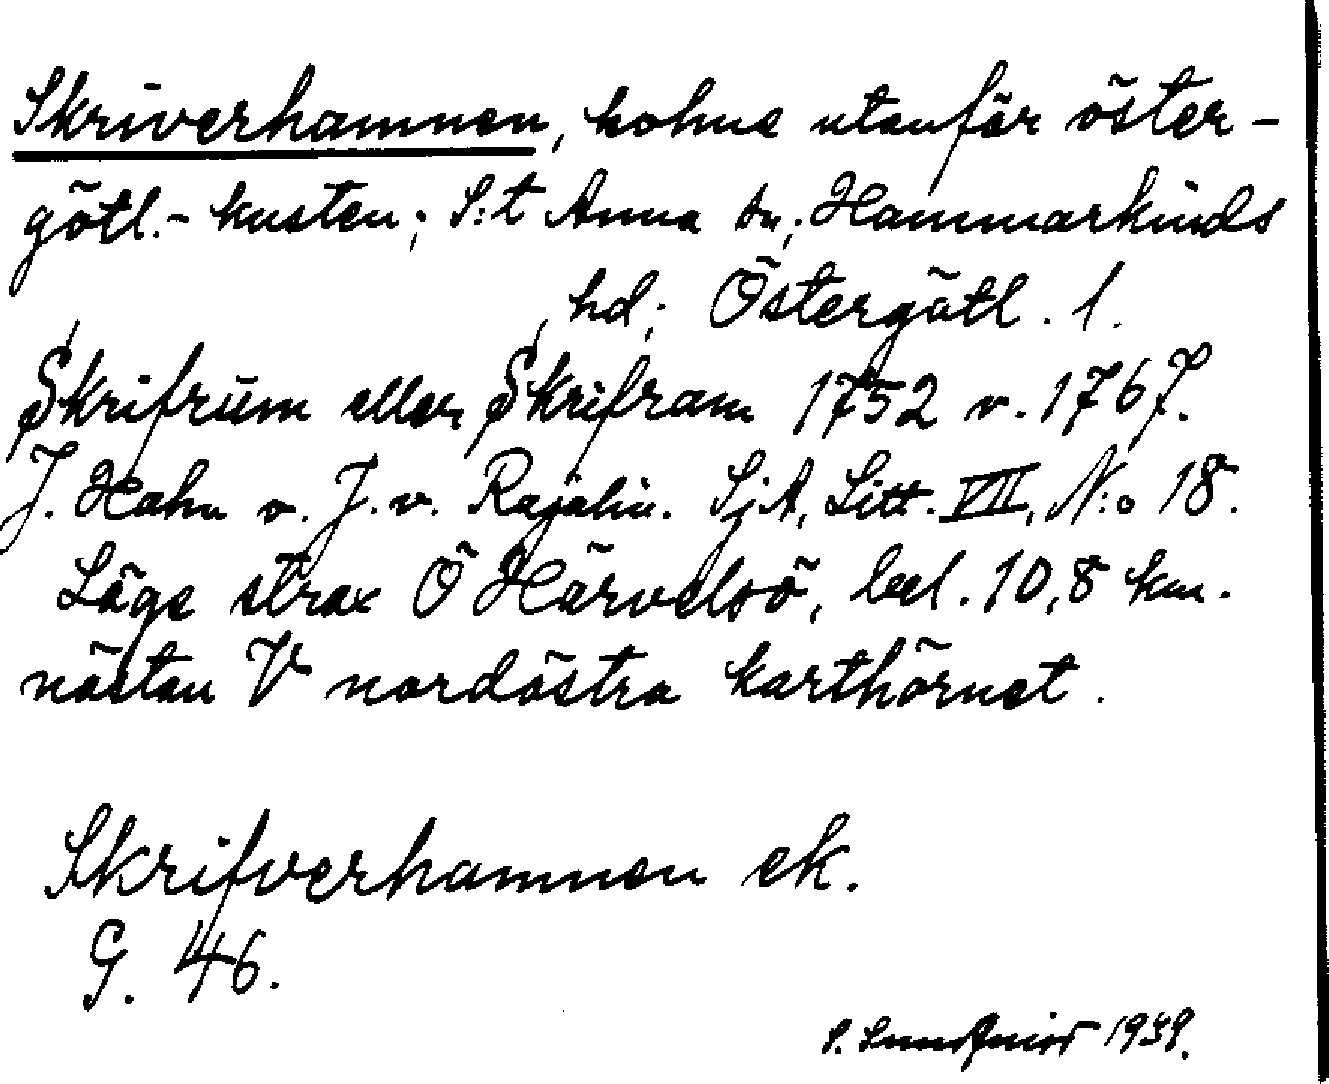 Skriverhamnen, holme utanför öster-
götl.- kusten; S:t Anna sn; Hammarkinds
hd; Östergötl. l.
Skrifrum eller Skrifram 1752 o. 1767.
J. Hahn o. J. v. Rajalin. SjA, Litt. VII, N:o 18.
Läge strax Ö Härvelsö, bel. 10,8 km.
nästan V nordöstra karthörnet.
Skrifverhamnen ek.
G. 46.
S. 1939.